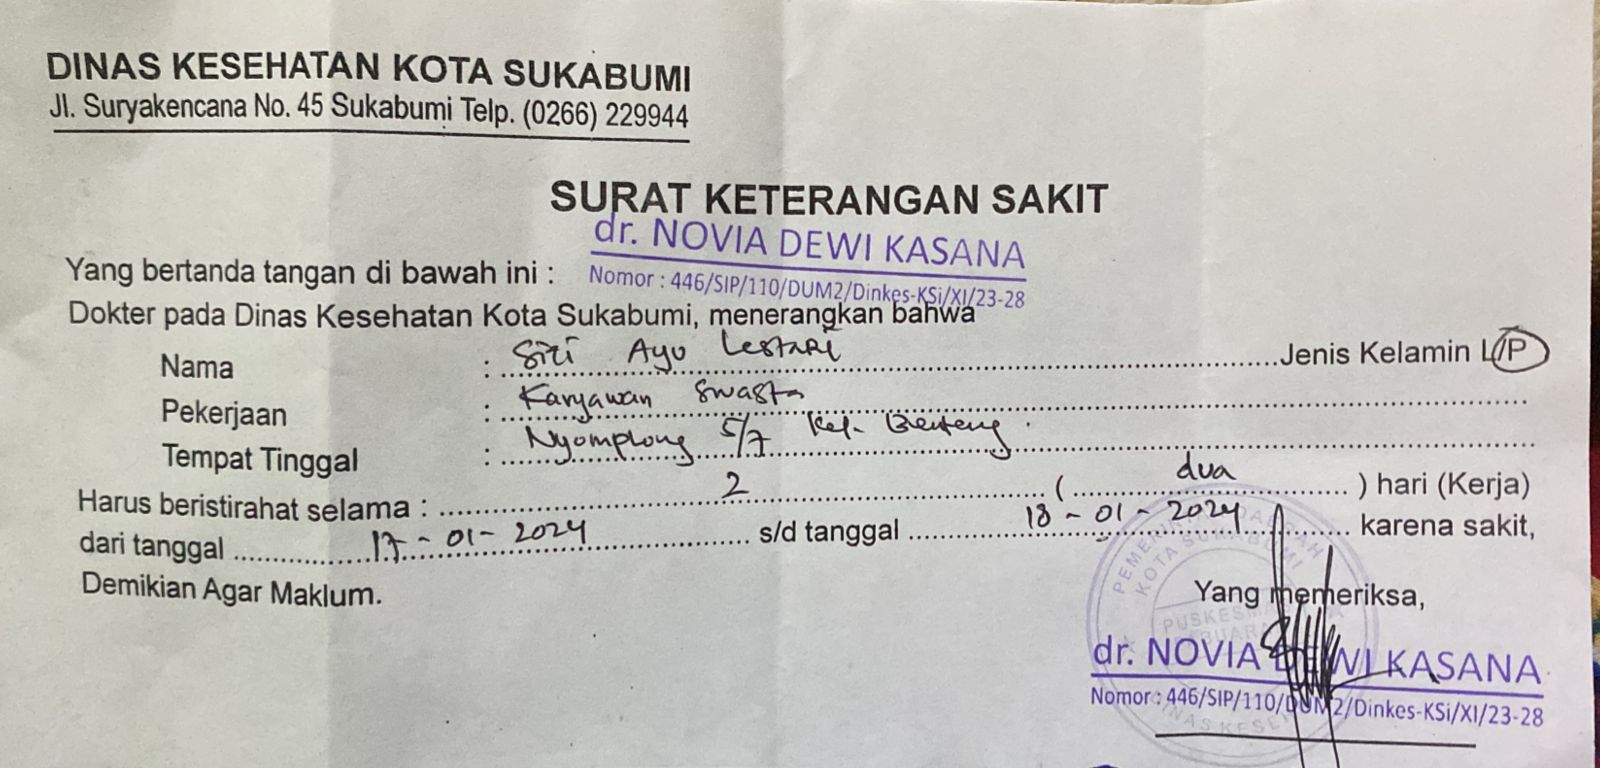 DINAS KESEHATAN KOTA SUKABUMI
Jl. Suryakencana No. 45 Sukabumi Telp. (0266) 229944
SURAT KETERANGAN SAKIT
dr. NOVIA DEWI KASANA
Yang bertanda tangan di bawah ini :
Nomor : 446/SIP/110/DUM2/Dinkes-KSi/XI/23-28
Dokter pada Dinas Kesehatan Kota Sukabumi, menerangkan bahwa
Nama : Siti Ayu Lestari Jenis Kelamin L/P
Pekerjaan : Karyawan Swasta
Tempat Tinggal : Nyomplong 5/7 Kel. Benteng.
Harus beristirahat selama : 2 ( dua ) hari (Kerja)
dari tanggal 17-01-2024 s/d tanggal 18-01-2024 karena sakit,
Demikian Agar Maklum.
Yang memeriksa,
dr. NOVIA DEWI KASANA
Nomor : 446/SIP/110/DUM2/Dinkes-KSi/XI/23-28
KOTA SUKABUMI